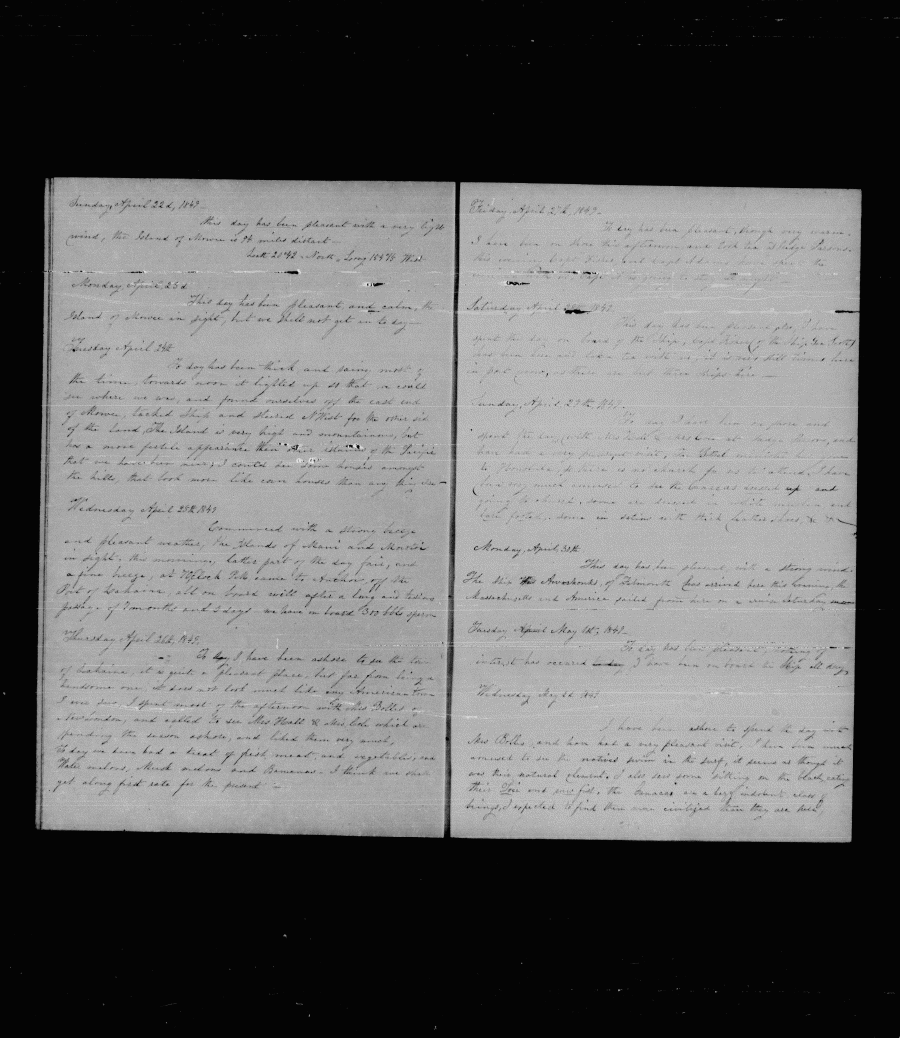 Sunday, April 22d, 1849 -
This day has been pleasant with a very light
wind, the Island of Mowee is 94 miles distant -
Latt 20°42 North, Long 154°79 West
Monday April 23d
This day has been pleasant and calm, the
Island of Mowee in sight, but we shall not get in to day -
Tuesday April 24th
To day has been thick and rainy most of
the time, towards noon it lighted up so that we could
see where we was, and found ourselves off the east end
of Mowee, tacked Ship and steered N West for the other side
of the land. The Island is very high and mountainous, but
has a more fertile appearance than other Islands of the Pacific
that we have seen near, I could see some houses amongst
the hills, that look more like corn houses than any thing else -
Wednesday April 25th 1849
Commenced with a strong breeze
and pleasant weather, the Islands of Maui and Morotoi
in sight, this morning, latter part of the day fair, and
a fine breeze, at 4 o'clock P.M. came to Anchor, off the
Port of Lahaina, all on board well after a long and tedious
passage of 7 months and 2 days we have on board 300 bbls sperm
Thursday April 26th, 1849.
To day I have been ashore to see the town
of Lahaina, it is quite a pleasant place, but far from being a
handsome one, it does not look much like any American town
I ever saw, I spent most of the afternoon with Mrs Bolles of
New London, and called to see Mrs Hall & Mrs Cole which are
spending the season ashore, and liked them very much,
To day we have had a treat of fresh meat, and vegetables, and
Water melons, Musk melons and Bananas. I think we shall
get along first rate for the present -
Friday April 27th, 1849 -
To day has been pleasant, though very warm,
I have been on shore this afternoon and took tea
this evening, Capt Fisher and Capt
Saturday April 28th 1849.
This day has been pleasant also, I have
spent the day on board of the Ship, Capt Fisher of the Ship
has been here and taken tea with us, it is very still times here
in port now, as there are but three ships here -
Sunday, April 29th 1849.
To day I have been on shore and
spent the day with Mrs
have had a very pleasant visit, the
to Honolulu, so there is no church for us to attend, I have
been very much amused to see the kanacas dressed up and
going to church, some are dressed in white muslin and
bare footed, some in satin with thick leather shoes, & &
Monday, April, 30th
This day has been pleasant, with a strong wind.
The ship Awashonks, of Falmouth Mass arrived here this evening, the
Massachusetts and America sailed from here on a cruise Saturday
Tuesday April May 1st, 1849 -
To day has been pleasant, nothing of
interest has occured to day, I have been on board the ship all day,
Wednesday May 2d 1849.
I have been ashore to spend the day with
Mrs Bolles, and have had a very pleasant visit, I have been much
amused to see the natives swim in the surf, it seems as though it
was their natural element. I also saw some sitting on the beach, eating
their Poie and raw fish, the canacas are a very indolent class of
beings, I expected to find them more civilized than they are here,